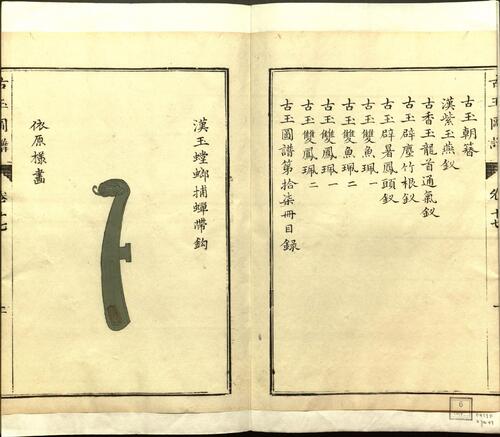 古玉朝簪
漢紫玉燕釵
古香玉龍首通氣釵
古玉辟塵竹根釵
古玉辟暑鳳頭釵
古玉雙魚珮一
古玉雙魚珮二
古玉雙鳳珮一
古玉雙鳳珮二
古玉圖譜第拾柒冊目錄
漢玉螳螂捕蟬帶鈎
依原樣畫
古玉圖譜
卷十七
6